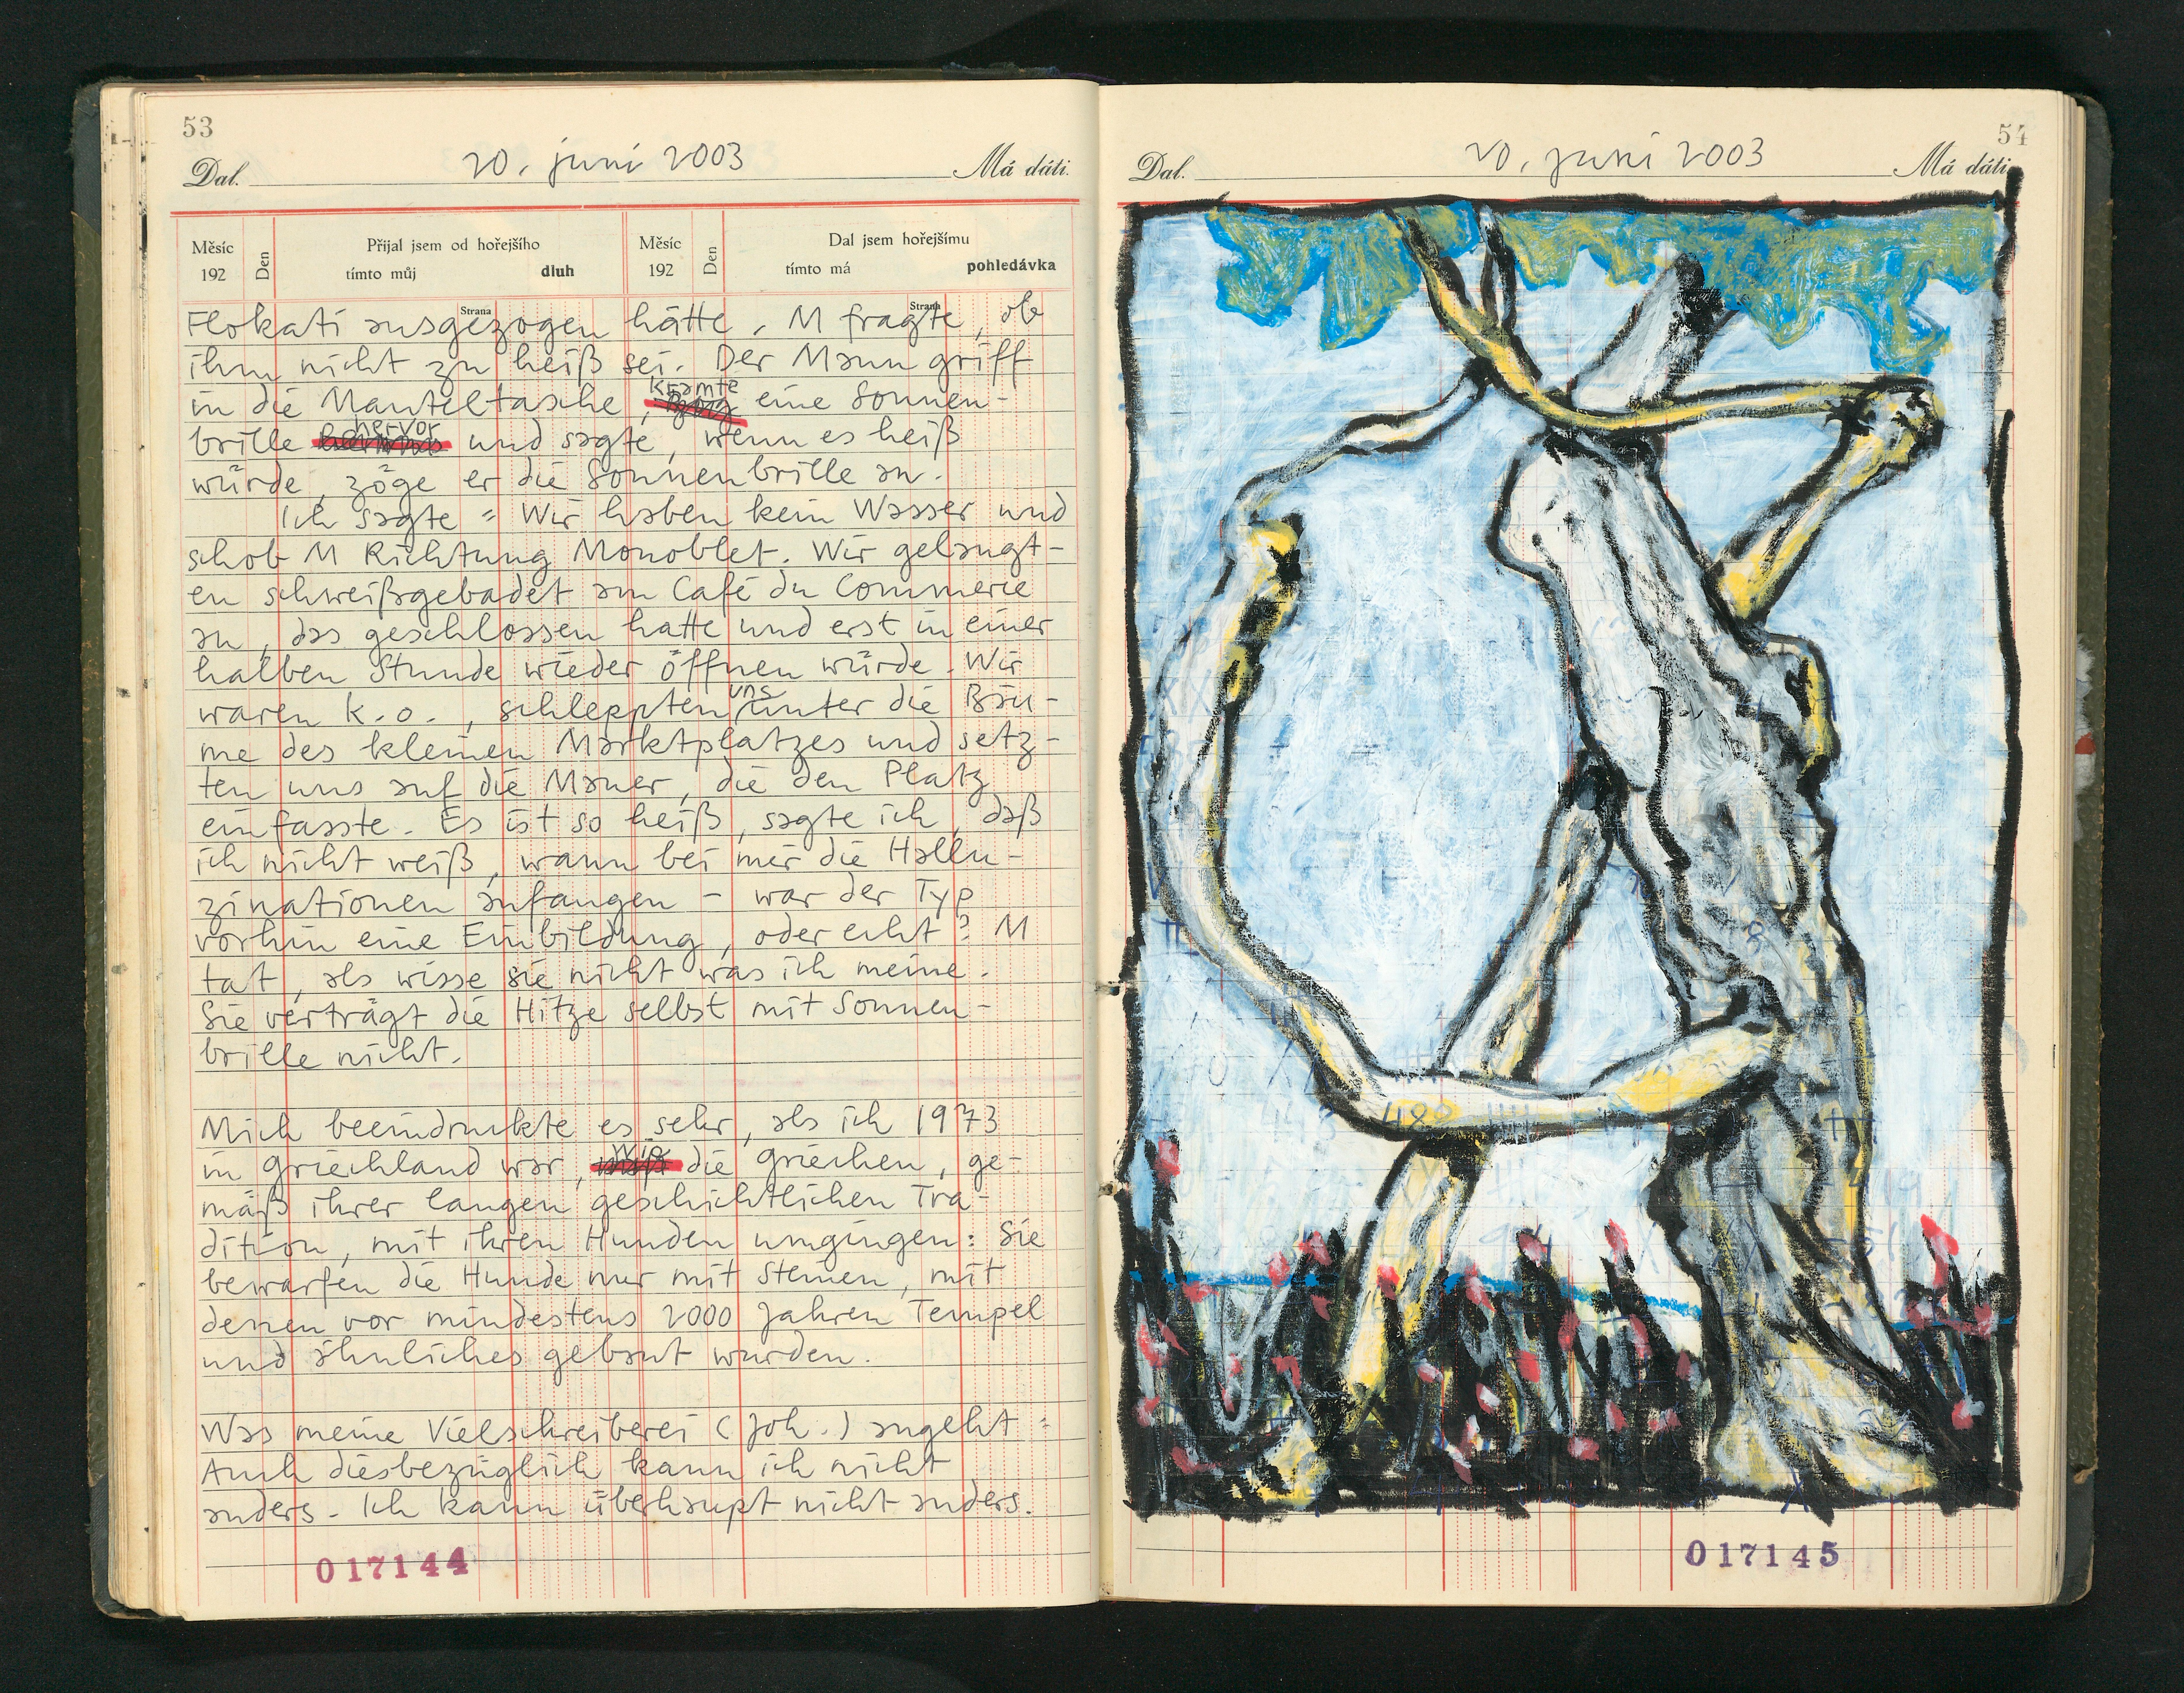 53
20. juni 2003
Dal. Má dáti.
Měsíc Den Přijal jsem od hořejšího Měsíc Den Dal jsem hořejšímu
192 tímto můj dluh 192 tímto má pohledávka
Strana Strana
Flokati ausgezogen hätte. M fragte, ob
ihm nicht zu heiß sei. Der Mann griff
in die Manteltasche, kramte eine Sonnen-
brille hervor und sagte, wenn es heiß
würde, zöge er die Sonnenbrille an.
Ich sagte: Wir haben kein Wasser und
schob M Richtung Monoblet. Wir gelangt-
en schweißgebadet am Café du Commerce
an, das geschlossen hatte und erst in einer
halben Stunde wieder öffnen würde. Wir
waren k.o., schleppten uns unter die Bäu-
me des kleinen Marktplatzes und setz-
ten uns auf die Mauer, die den Platz
einfasste. Es ist so heiß, sagte ich, daß
ich nicht weiß, wann bei mir die Hallu-
zinationen anfangen – war der Typ
vorhin eine Einbildung, oder echt? M
tat, als wisse sie nicht was ich meine.
Sie verträgt die Hitze selbst mit Sonnen-
brille nicht.
Mich beeindruckte es sehr, als ich 1973
in Griechland war, wie die Griechen, ge-
mäß ihrer langen geschichtlichen Tra-
dition, mit ihren Hunden umgingen: Sie
bewarfen die Hunde nur mit Steinen, mit
denen vor mindestens 2000 Jahren Tempel
und ähnliches gebaut wurden.
Was meine Vielschreiberei (Joh.) angeht:
Auch diesbezüglich kann ich nicht
anders. Ich kann überhaupt nicht anders.
017144
54
20. juni 2003
Dal. Má dáti.
017145